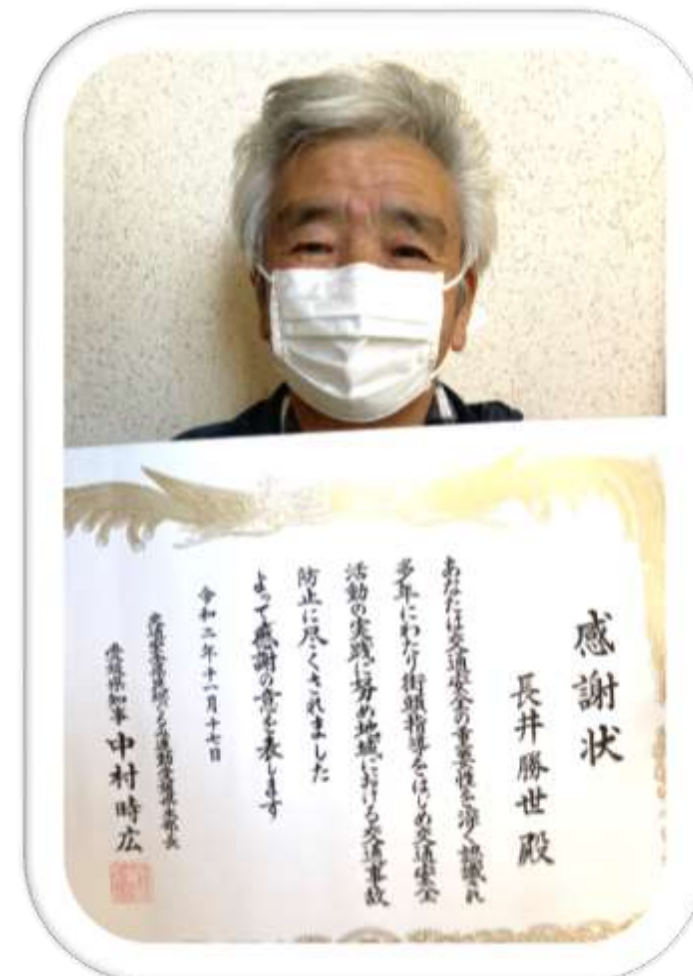 感謝状
長井勝世殿
あなたは交通安全の重要性を深く認識され
多年にわたり街頭指導をはじめ交通安全
活動の実践に努め地域における交通事故
防止に尽くされました
よって感謝の意を表します
令和二年十一月十七日
交通安全県民総ぐるみ運動愛媛県本部長
愛媛県知事 中村時広